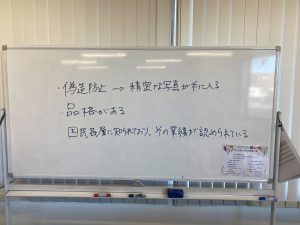 ・偽造防止 → 精密な写真が手に入る
品格がある
国民各層に知られており、その業績が認められている